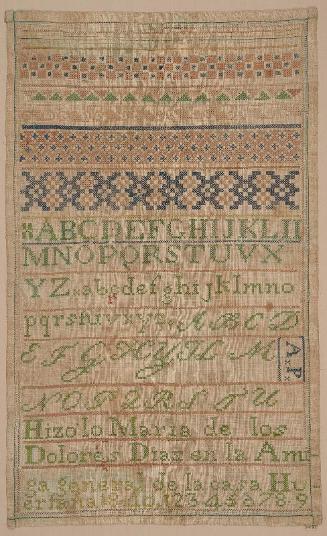 ABCDEFGHIJKLLL
MNOPQRSTUVX
YZ abcdefghijklmno
pqrstuvxyz, ABCD
EFGHYJLL M
A.P.
NOPQRSTU
Hizo lo Maria de los
Dolores Diaz en la Ami-
ga general de la casa Hu
erfanas 123456789